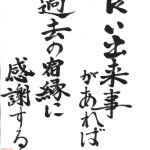 良い出来事
があれば
過去の宿縁に
感謝する